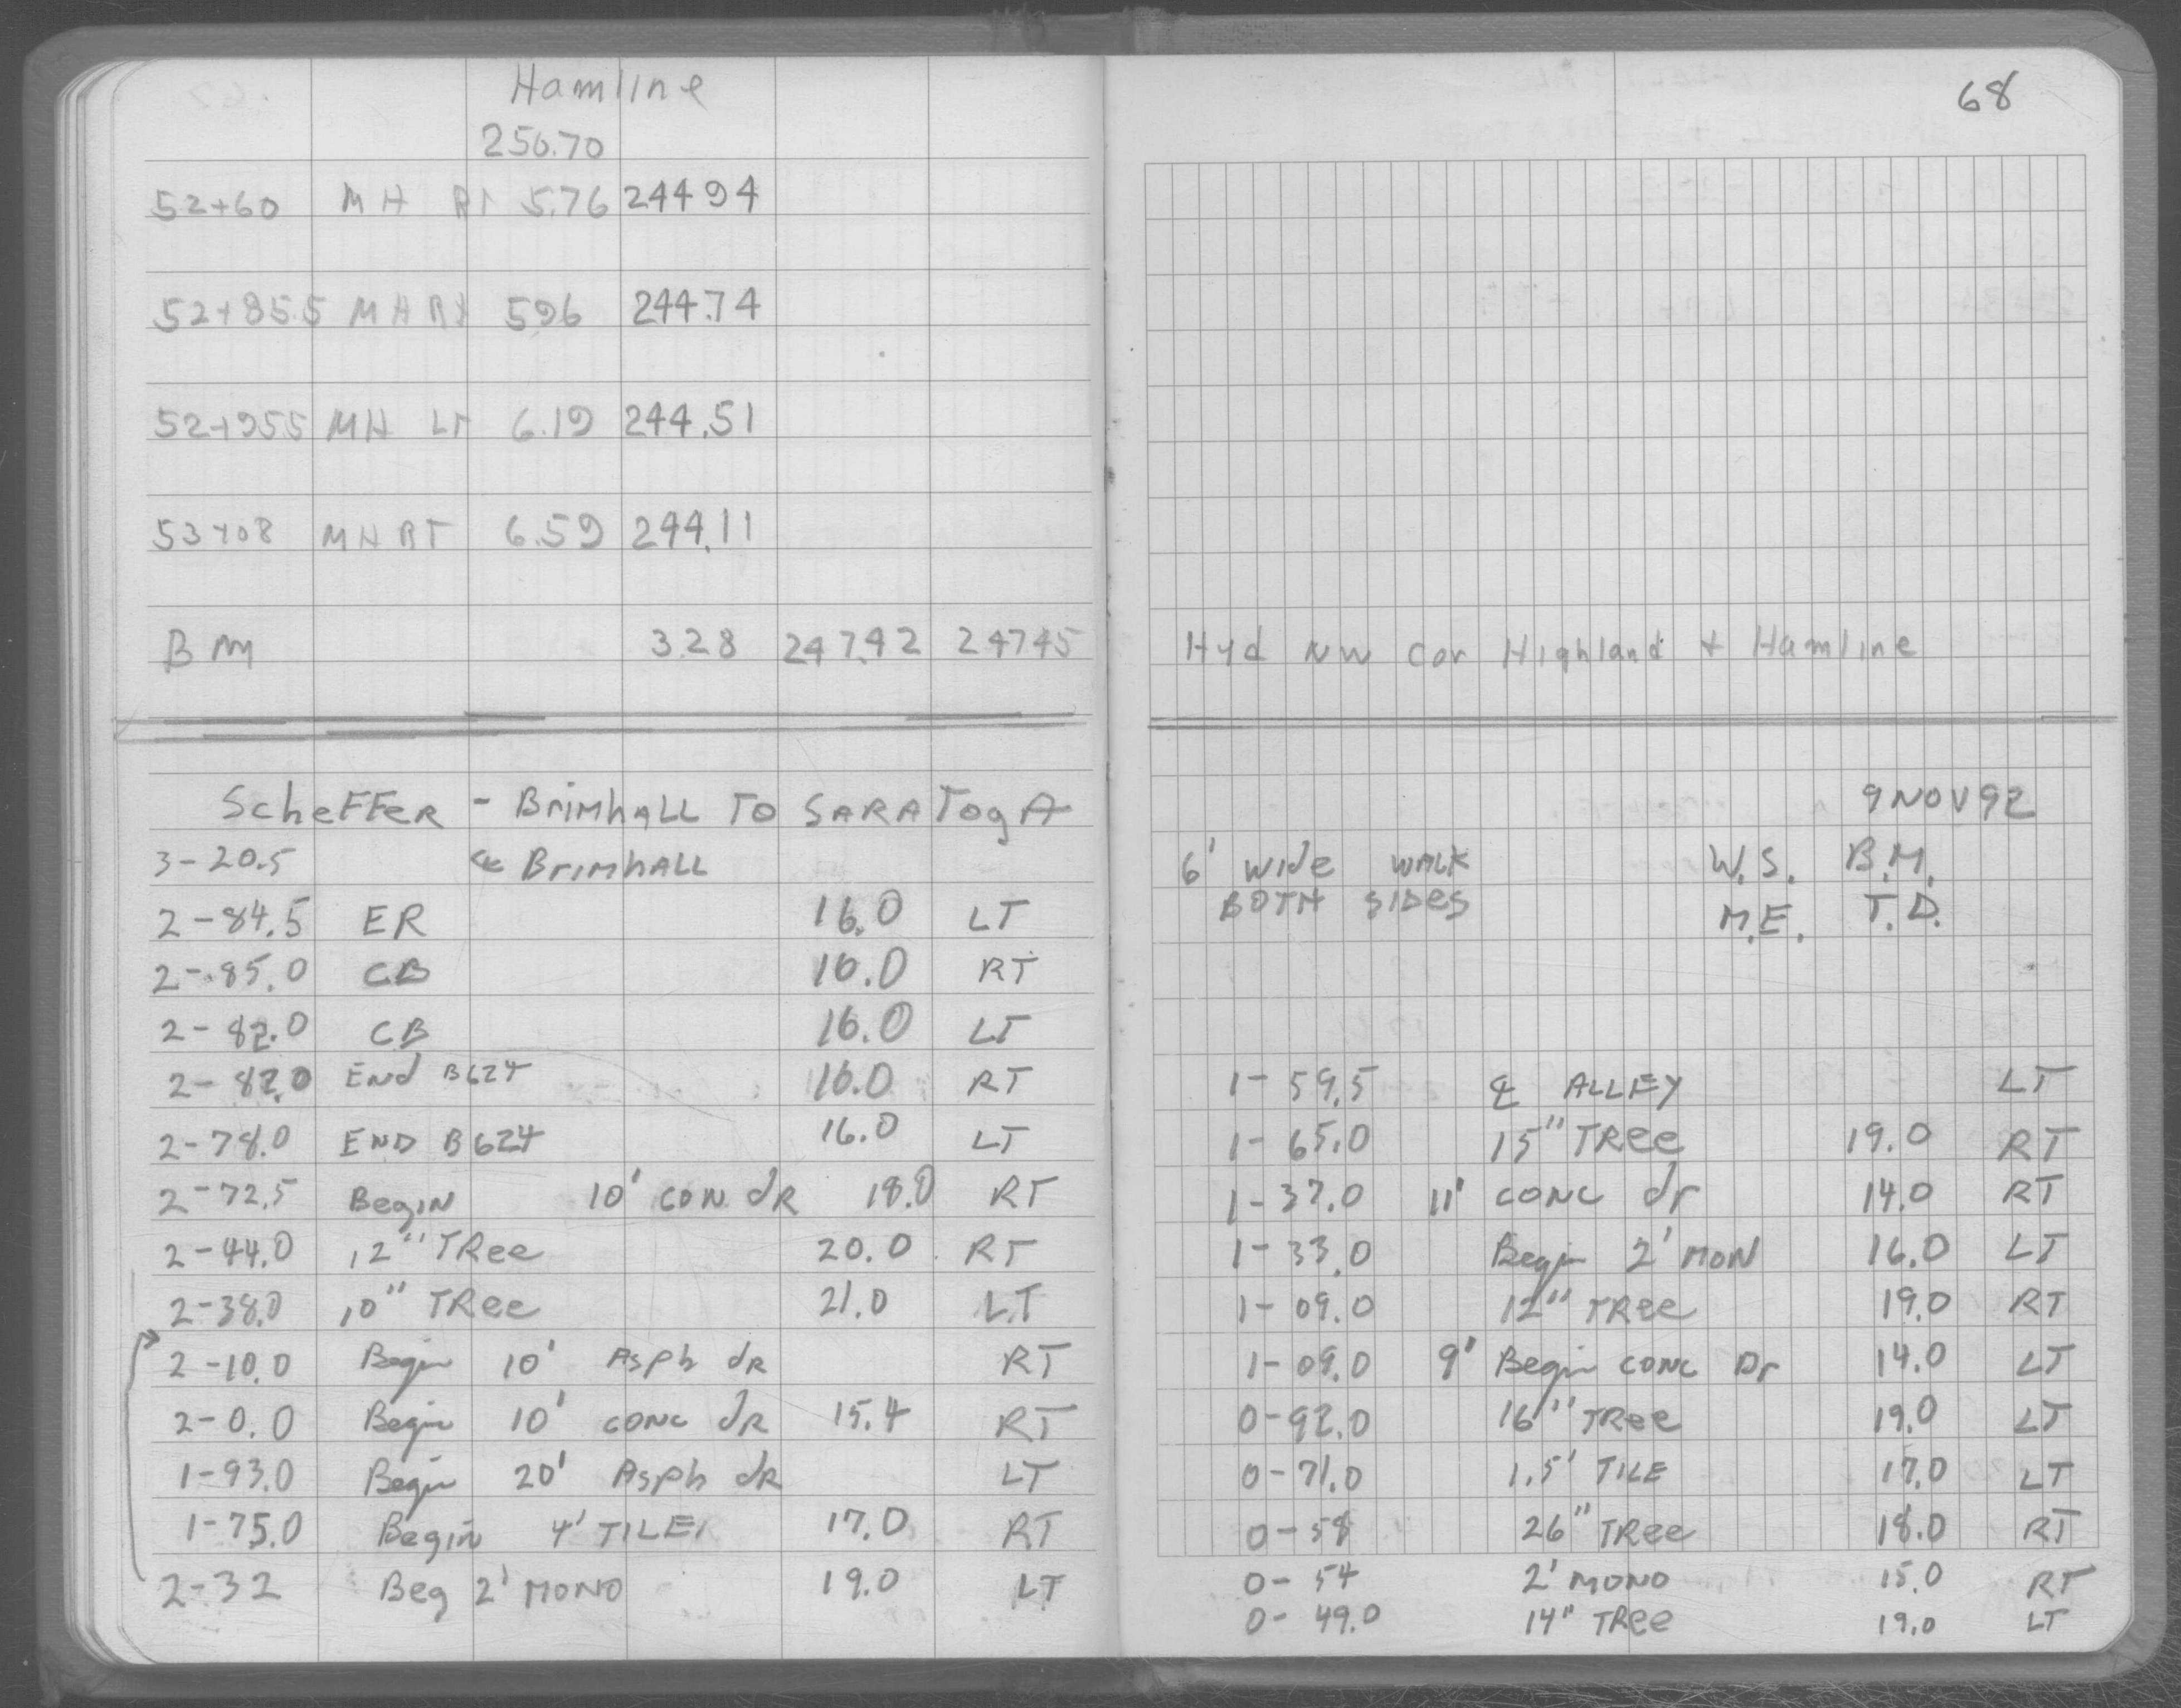 Hamline
250.70
52+60 MH RT 5.76 244 94
52+85.5 MH RT 5 96 244.74
52+955 MH LT 6.19 244.51
53+08 MH RT 6.59 244.11
BM 3.28 247.42 247 45
Scheffer - Brimhall To Saratoga
3-20.5 ℄ Brimhall
2-84.5 ER 16.0 LT
2-85.0 CB 16.0 RT
2-82.0 CB 16.0 LT
2-82.0 End B624 16.0 RT
2-78.0 END B624 16.0 LT
2-72.5 Begin 10' CON dR 18.0 RT
2-44.0 12" TRee 20.0 RT
2-38.0 10" TRee 21.0 LT
2-10.0 Begin 10' Asph dR RT
2-0.0 Begin 10' conc dR 15.4 RT
1-93.0 Begin 20' Asph dR LT
1-75.0 Begin 4' TILE 17.0 RT
2-32 Beg 2' MONO 19.0 LT
68
Hyd NW Cor Highland + Hamline
9 NOV 92
6' wide walk W.S. B.M.
BOTH SIDES M.E. T.D.
1-59.5 ℄ ALLEY LT
1-65.0 15" TRee 19.0 RT
1-37.0 11' conc dr 14.0 RT
1-33.0 Begin 2' MON 16.0 LT
1-09.0 12" TRee 19.0 RT
1-09.0 9' Begin conc Dr 14.0 LT
0-92.0 16" TRee 19.0 LT
0-71.0 1.5' TILE 17.0 LT
0-58 26" TRee 18.0 RT
0-54 2' MONO 15.0 RT
0-49.0 14" TRee 19.0 LT